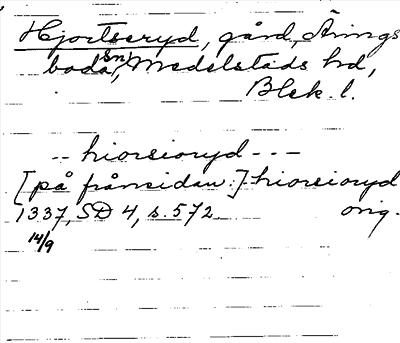 Hjortseryd, gård, Ärings-
boda sn, Medelstads hd,
Blek. l.
-- hiorsioryd - - -
[på frånsidan:] hiorsioryd
1337, SD 4, s. 572 orig.
14/9